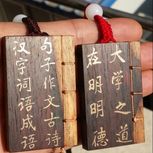 大学之道
在明明德
句子作文古诗
汉字词语成语